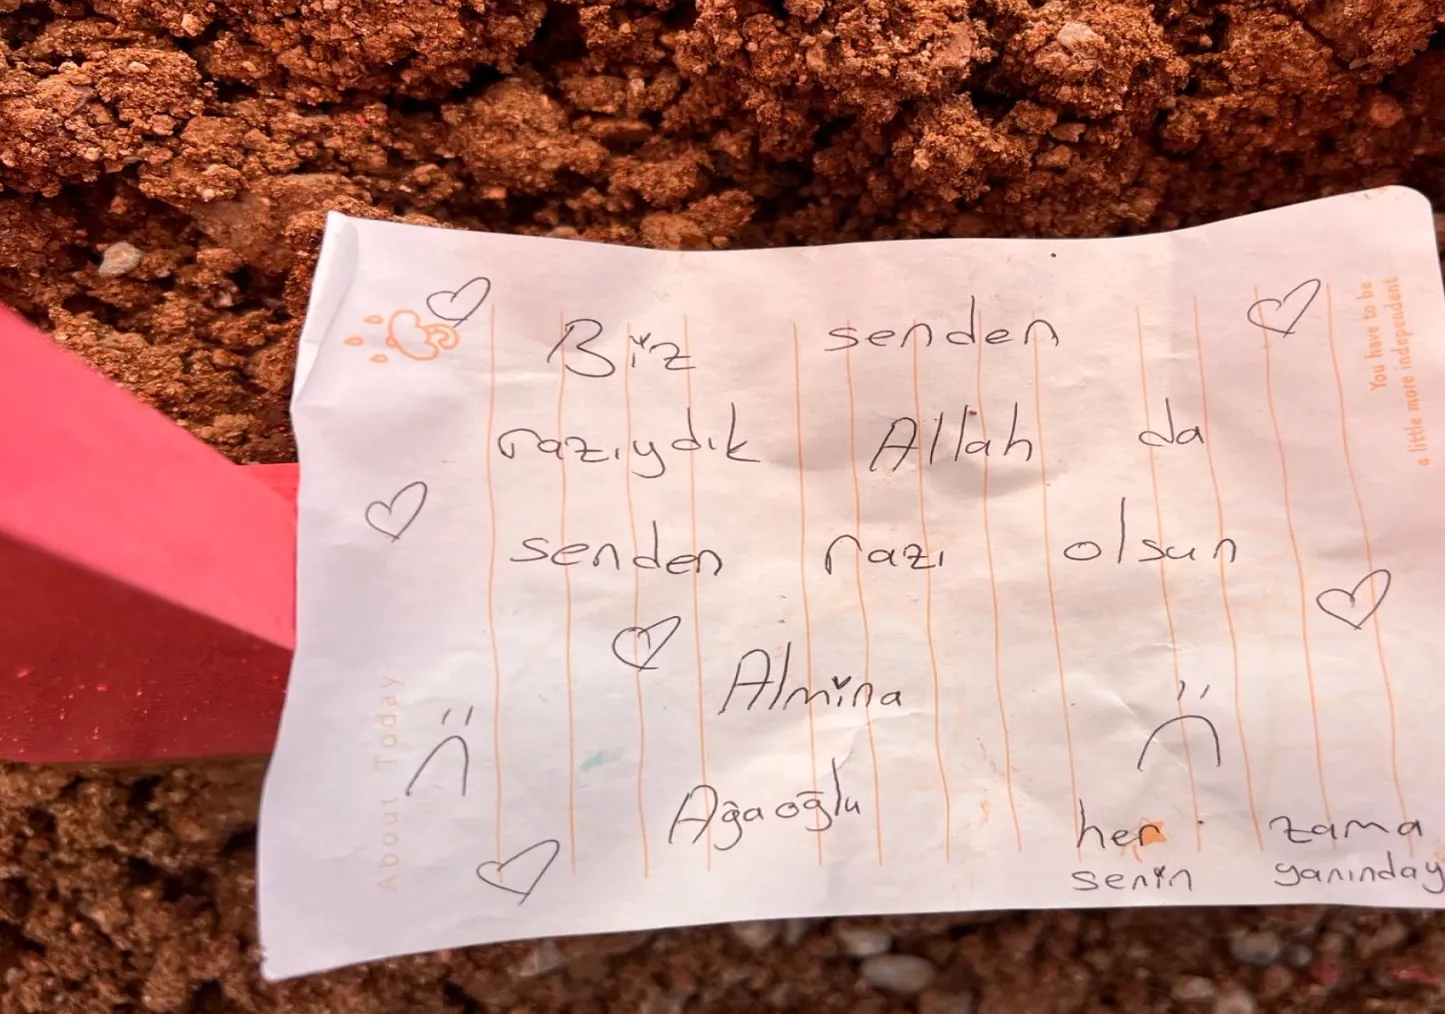 Biz senden
razıydık Allah da
senden razı olsun
Almina
Ağaoğlu
her zama
senin yanınday
About Today
You have to be
a little more independent